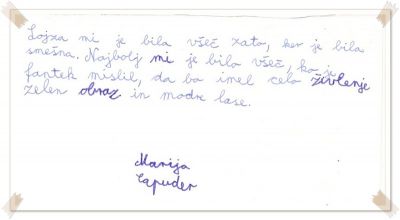 Lojza mi je bila všeč zato, ker je bila
smešna. Najbolj mi je bilo všeč, ko je
fantek mislil, da bo imel celo življenje
zelen obraz in modre lase.
Marija
Capuder